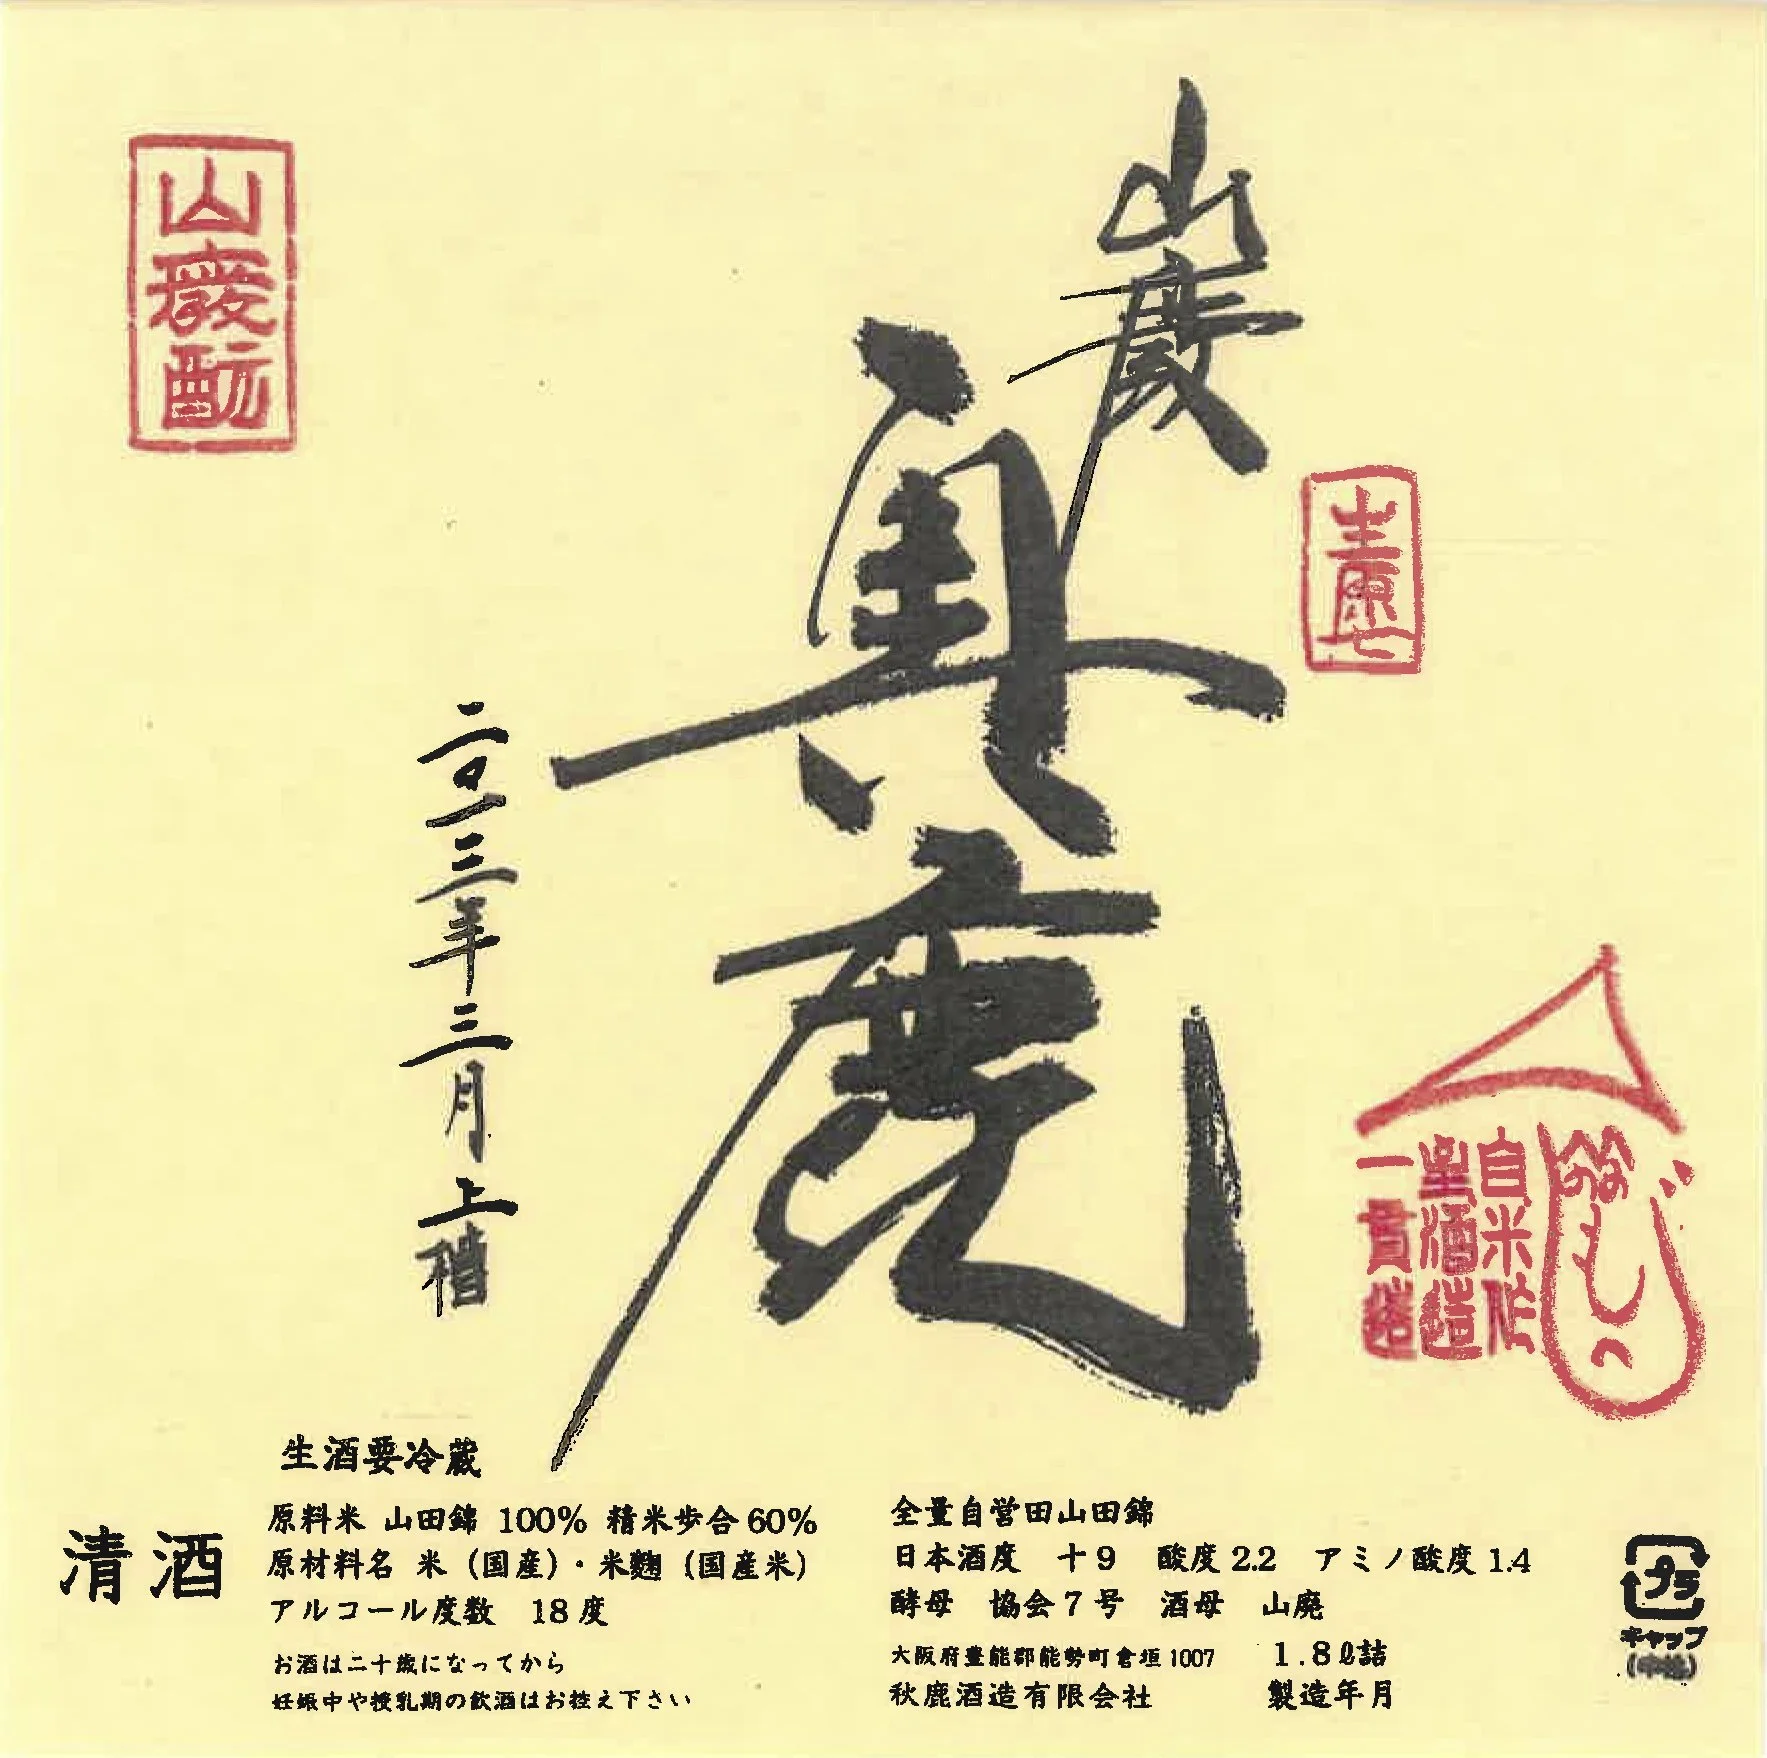 山廢酛
山廢
奥鹿
二〇一三年三月上槽
自米作
酒造
一貫造
生酒要冷蔵
清酒
原料米 山田錦 100% 精米歩合60%
原材料名 米（国産）・米麹（国産米）
アルコール度数 18度
お酒は二十歳になってから
妊娠中や授乳期の飲酒はお控え下さい
全量自営田山田錦
日本酒度 +9 酸度2.2 アミノ酸度1.4
酵母 協会7号 酒母 山廃
大阪府豊能郡能勢町倉垣1007 1.8ℓ詰
秋鹿酒造有限会社 製造年月
プラ
キャップ